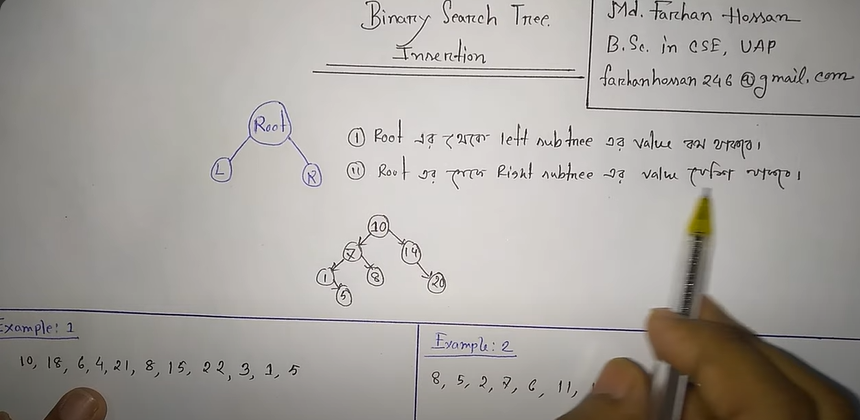 Binary Search Tree
Insertion
Md. Farhan Hossan
B.Sc. in CSE, UAP
farhanhossan246@gmail.com
Root
L
R
(i) Root এর থেকে left subtree এর value কম থাকবে।
(ii) Root এর থেকে Right subtree এর value বেশি থাকবে।
10
7
14
1
8
20
5
Example: 1
10, 18, 6, 4, 21, 8, 15, 22, 3, 1, 5
Example: 2
8, 5, 2, 7, 6, 11,